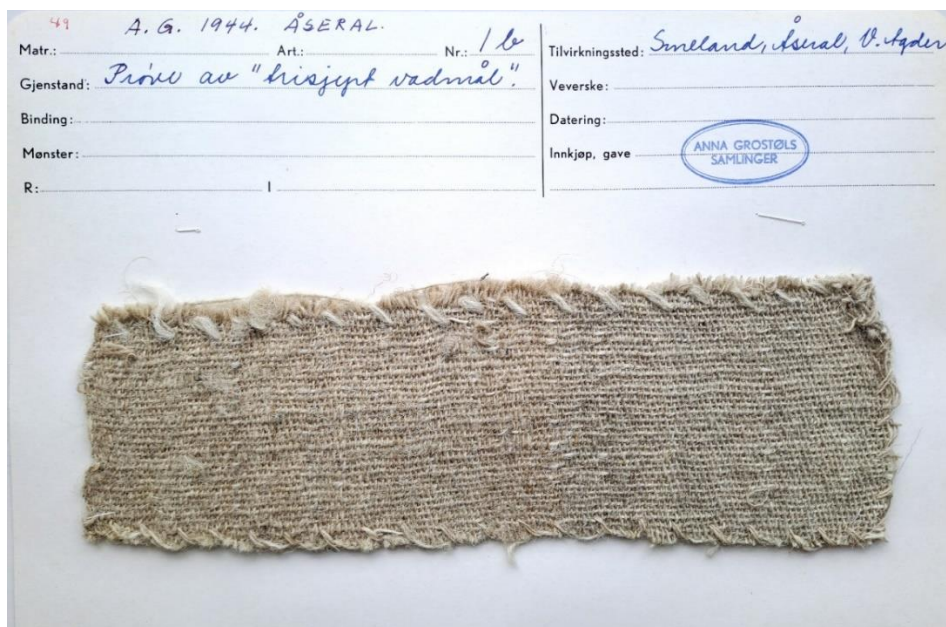 49 A. G. 1944. ÅSERAL.
Matr.: Art.: Nr.: 1 b
Gjenstand: Prøve av "trisjept vadmål".
Binding:
Mønster:
R: I
Tilvirkningssted: Smeland, Åseral, V. Agder
Veverske:
Datering:
Innkjøp, gave
ANNA GROSTØLS
SAMLINGER